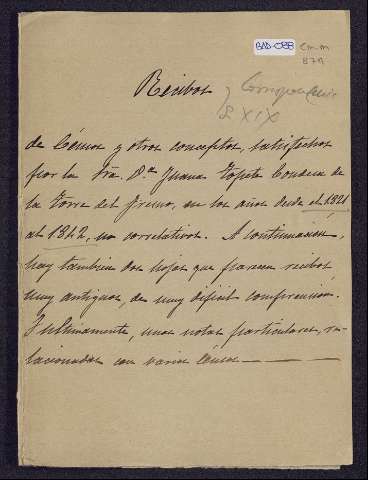 BAD-088
Cm. m
879
Recibos
y Correspondencia
S. XIX
de Censos y otros conceptos, satisfechos
por la Sra. Dª Juana Topete Condesa de
la Torre del Fresno, en los años desde el 1821
al 1842, no correlativos. A continuacion,
hay tambien dos hojas que parecen recibos
muy antiguos, de muy dificil comprension.
Y ultimamente, unas notas particulares, re-
lacionadas con varios Censos